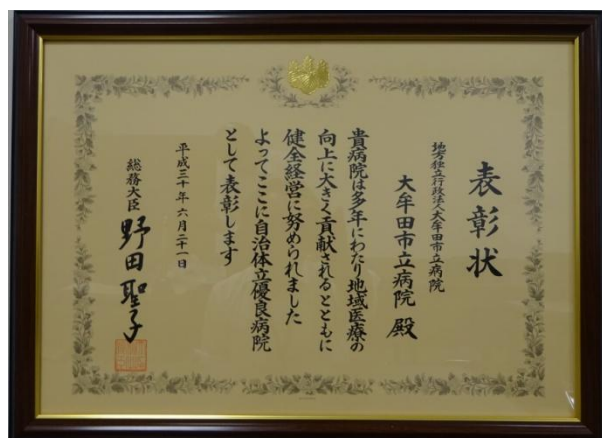 表彰状
地方独立行政法人大牟田市立病院
大牟田市立病院 殿
貴病院は多年にわたり地域医療の
向上に大きく貢献されるとともに
健全経営に努められました
よってここに自治体立優良病院
として表彰します
平成三十年六月二十一日
総務大臣 野田聖子